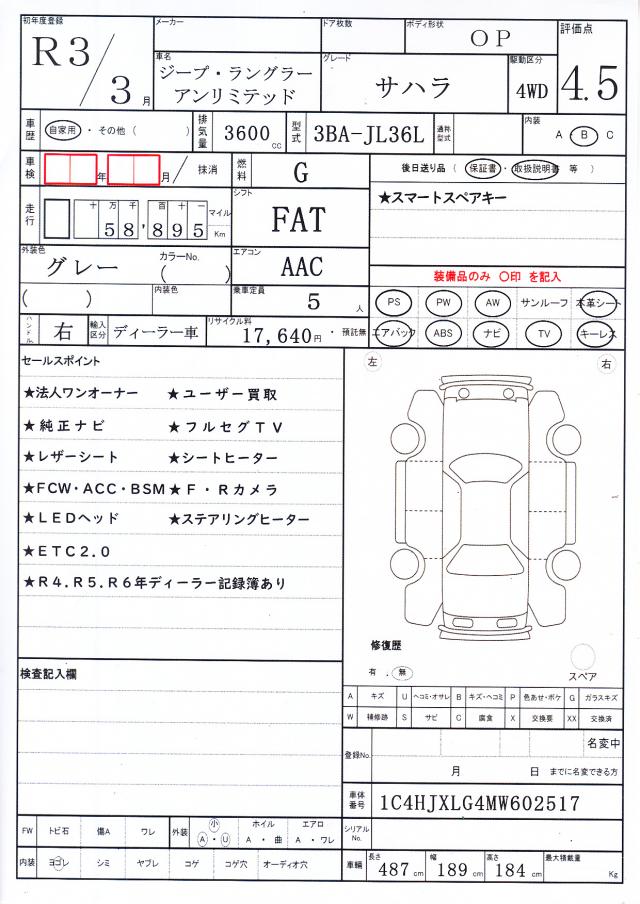 初年度登録 メーカー ドア枚数 ボディ形状 OP 評価点
R3/3月 車名 ジープ・ラングラー アンリミテッド グレード サハラ 駆動区分 4WD 4.5
車歴 自家用・その他( ) 排気量 3600cc 型式 3BA-JL36L 通称型式 内装 A・B C
車検 年 月/ 抹消 燃料 G 後日送り品(保証書・取扱説明書 等 )
走行 十万千百十一 58,895 マイル Km シフト FAT ★スマートスペアキー
外装色 グレー カラーNo.( ) エアコン AAC 装備品のみ 〇印 を記入
( ) 内装色 乗車定員 5人 PS PW AW サンルーフ 本革シート
ハンドル 右 輸入区分 ディーラー車 リサイクル料 17,640円・預託無 エアバック ABS ナビ TV キーレス
セールスポイント 左 右
★法人ワンオーナー ★ユーザー買取
★純正ナビ ★フルセグTV
★レザーシート ★シートヒーター
★FCW・ACC・BSM★F・Rカメラ
★LEDヘッド ★ステアリングヒーター
★ETC2.0
★R4.R5.R6年ディーラー記録簿あり
修復歴
有 . 無 スペア
検査記入欄
A キズ U ヘコミ・オサレ B キズ・ヘコミ P 色あせ・ボケ G ガラスキズ
W 補修跡 S サビ C 腐食 X 交換要 XX 交換済
登録No. 名変中
月 日 までに名変できる方
車体番号 1C4HJXLG4MW602517
FW トビ石 傷A ワレ 外装 小 A・U ホイル A・曲 エアロ A・ワレ シリアルNo.
内装 ヨゴレ シミ ヤブレ コゲ コゲ穴 オーディオ穴 車輛 長さ 487cm 幅 189cm 高さ 184cm 最大積載量 Kg